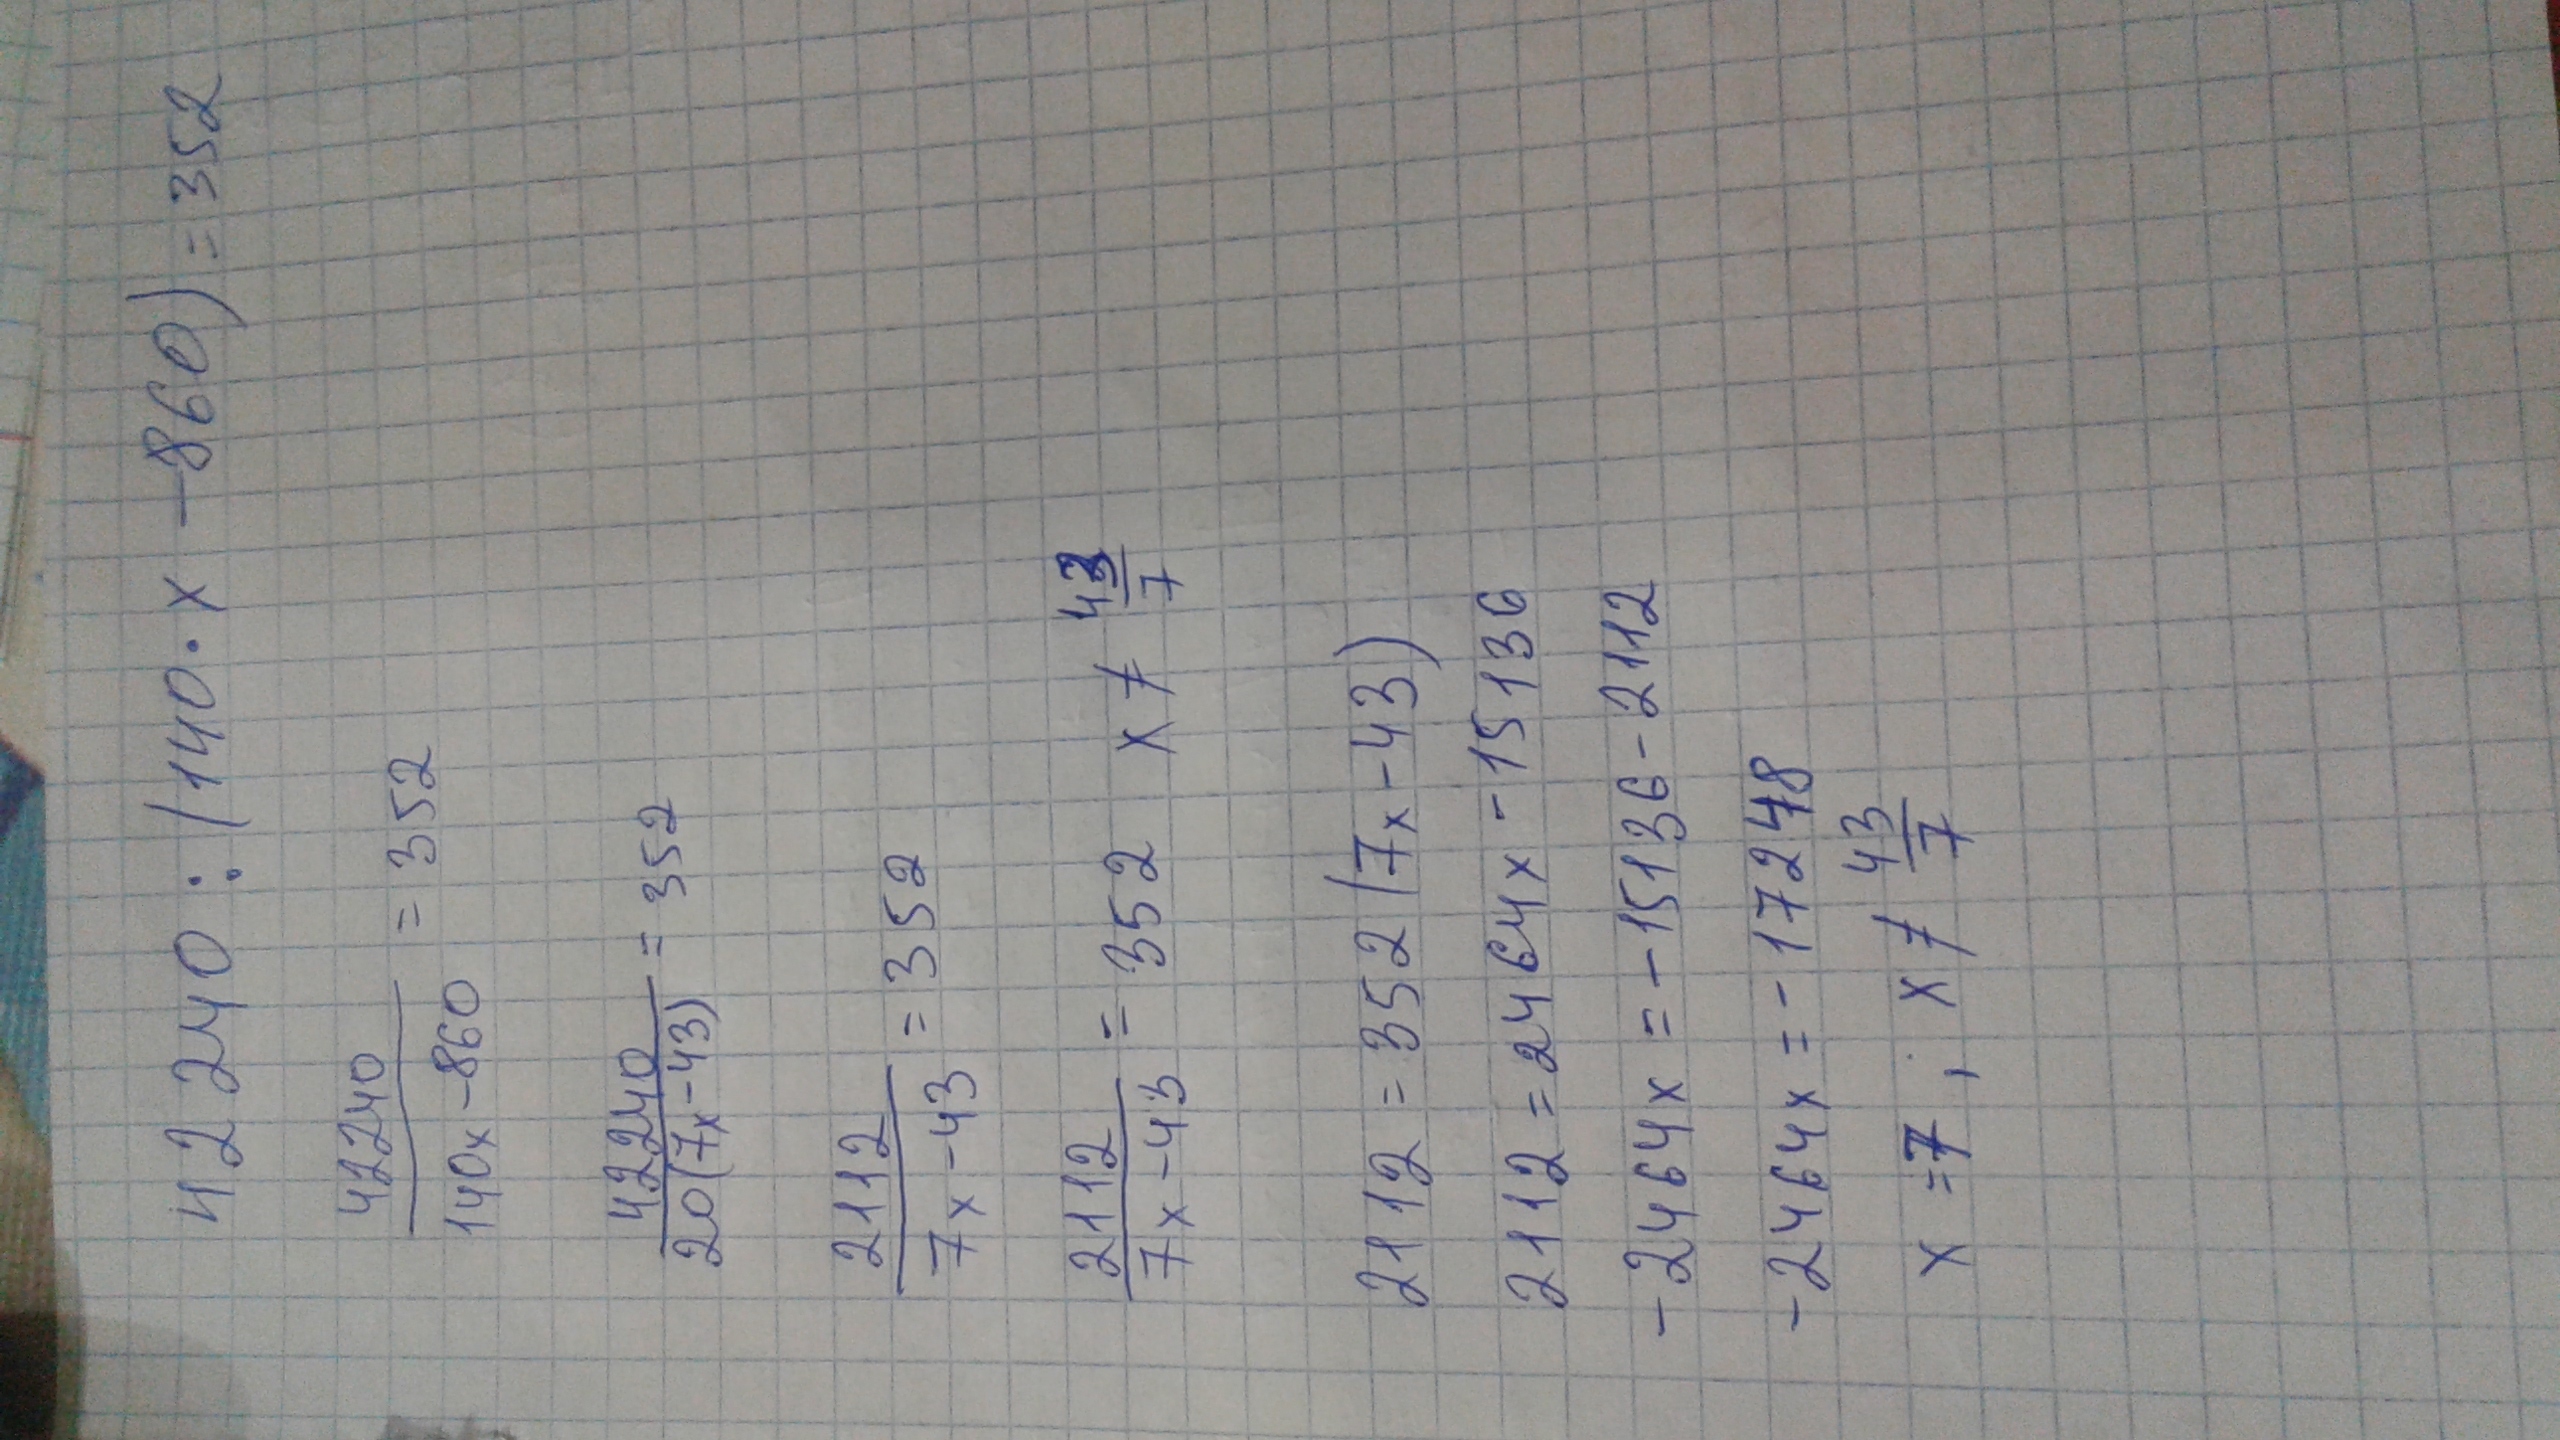 42240 : (140 · x − 860) = 352
42240
140x − 860 = 352
42240
20(7x − 43) = 352
2112
7x − 43 = 352
2112
7x − 43 = 352 x ≠ 43/7
2112 = 352(7x − 43)
2112 = 2464x − 15136
−2464x = −15136 − 2112
−2464x = −17248
x = 7, x ≠ 43/7